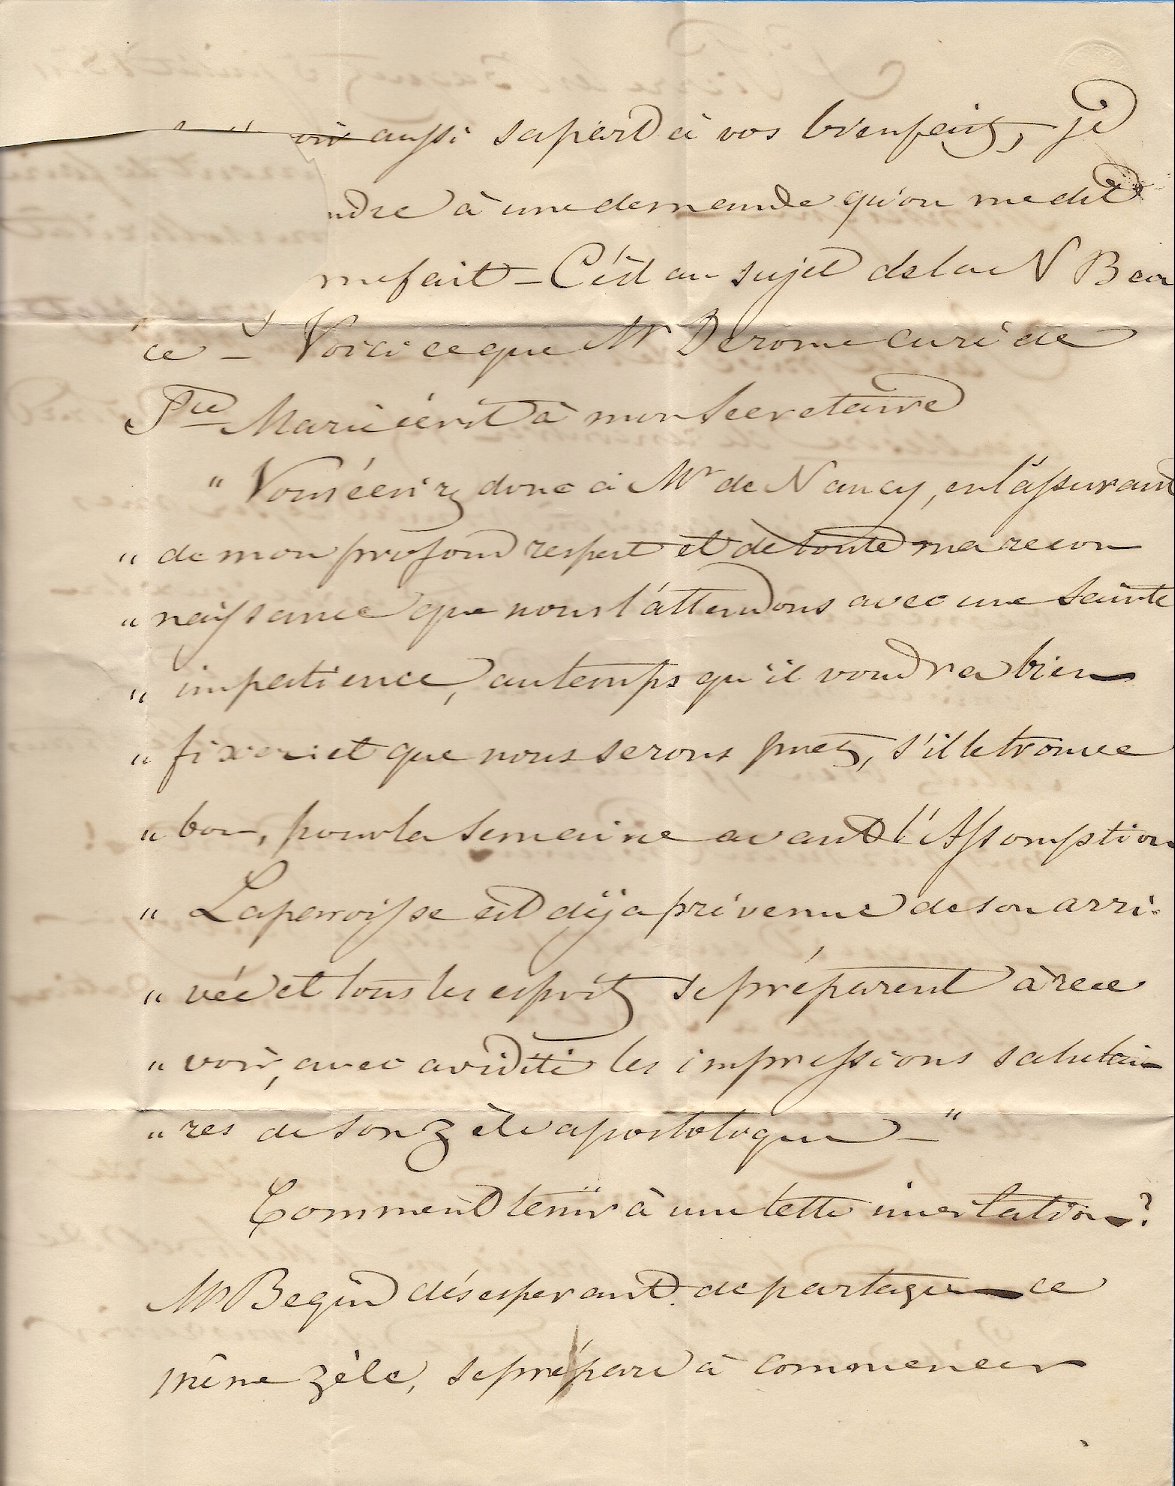 aussi sa part à vos bienfaits, je
ndre à une demande qu'on me dit
me fait – C'est au sujet de la N Beau
ce – Voici ce que Mr Derome curé de
Ste Marie écrit à mon Secretaire
" Vous écrirez donc à Mr de Nancy, en l'assurant
" de mon profond respect et de toute ma recon
" naissance que nous l'attendons avec une Sainte
" impatience, au temps qu'il voudra bien
" fixer et que nous serons prets, s'il le trouve
" bon, pour la Semaine avant l'Assomption
" La paroisse est déja prévenue de son arri-
" vée et tous les esprits se préparent à rece
" voir, avec avidité les impressions salutai-
" res de son zèle apostolique – "
Comment tenir à une telle invitation ?
Mr Begin désesperant de partager ce
même zèle, se prépare à commencer